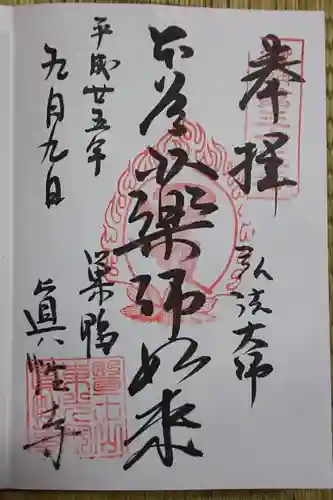 奉拝
弘法大師
本尊 薬師如来
巣鴨 眞性寺
平成廿五年
九月九日